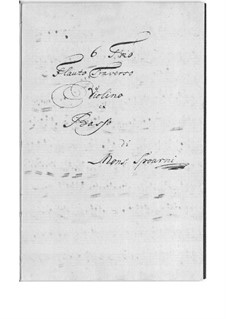 6 Trio
Flauto Traverso
Violino
è
Basso
di
Mons.